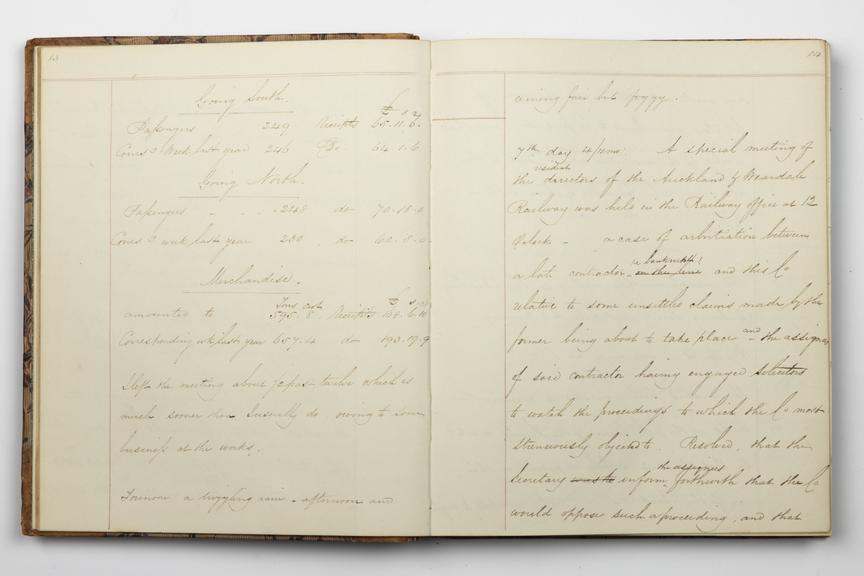 Going South.
£ s d
Passengers 249 Receipts 65.11.6
Corres g Week last year 246 Do 64.1.6
Going North.
Passengers - - 248 do 70.18.0
Corres g week last year 230 do 60.8.0
Merchandise.
Tons cwt £ s d
amounted to 595.8 Receipts 168.6.10
Corresponding wk last year 657.4 do 193.19.9
I left the meeting about ½ past twelve which is
much sooner than I usually do owing to some
business at the works.
Forenoon a drizzling rain - afternoon and
evening fair but foggy.
7th day 4/ A special meeting of
resident
the directors of the Auckland & Weardale
Railway was held in the Railway office at 12
Oclock - a case of arbitration between
(a bankrupt)
a late contractor and this Co
relative to some unsettled claims made by the
former being about to take place and the assignees
of said contractor having engaged solicitors
to watch the proceedings to which the Co most
strenuously objected to. Resolved, that the
the assignees
Secretary was to inform forthwith that the Co
would oppose such a proceeding, and that